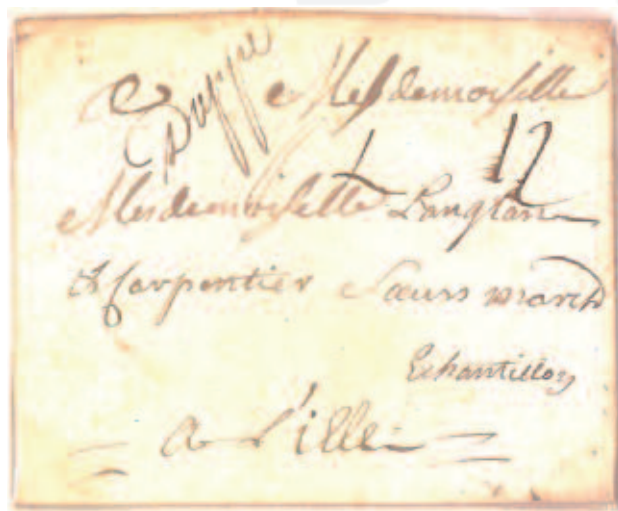 A Mesdemoiselle
Dieppe
12
Mesdemoiselle Langlan
& Carpentier Sœurs march
Echantillon
A Lille